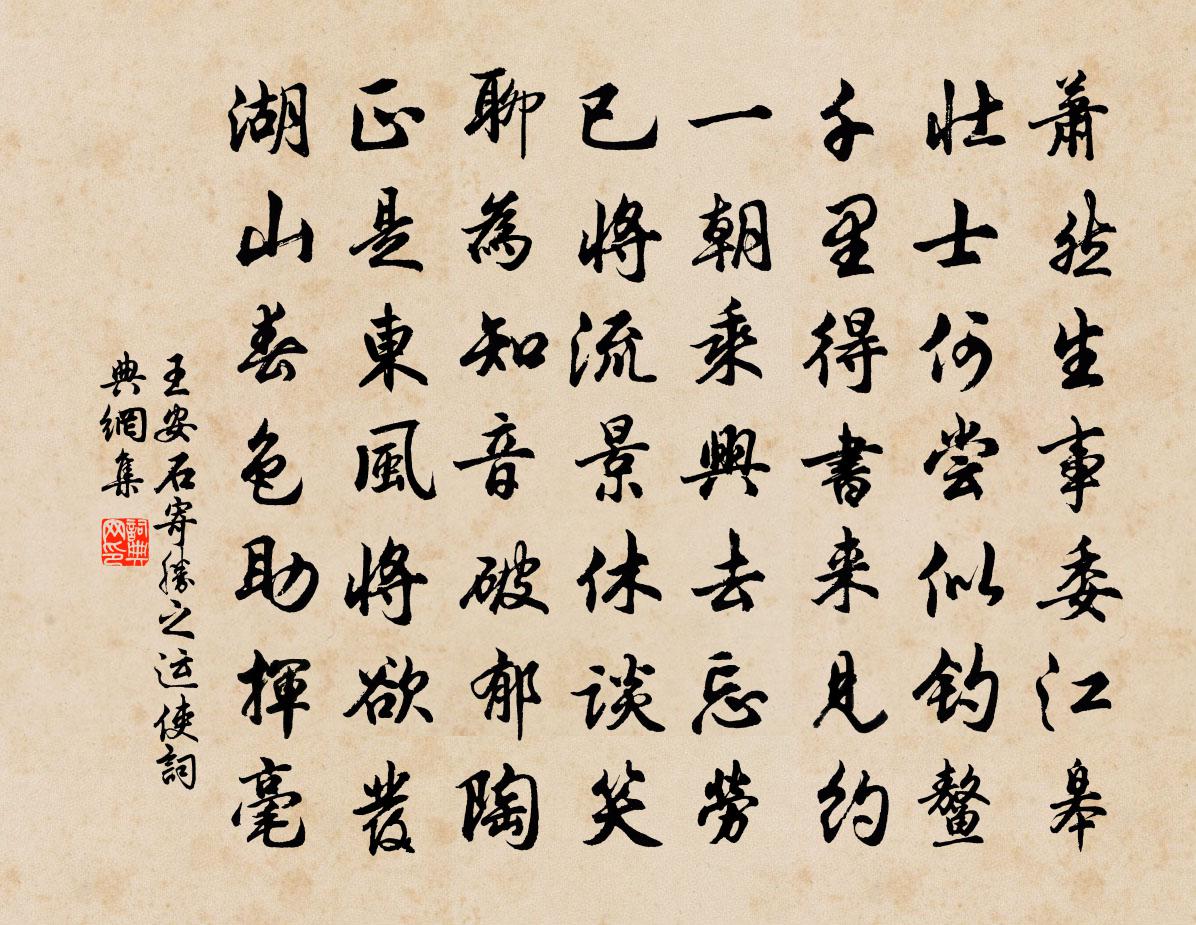 蕭然生事委江皋
壯士何嘗似釣鰲
千里得書来見約
一朝乘興去忘勞
已將流景休談笑
聊為知音破郁陶
正是東風將欲發
湖山春色助揮毫
王安石寄勝之运使詞
典網集
詞典
网印